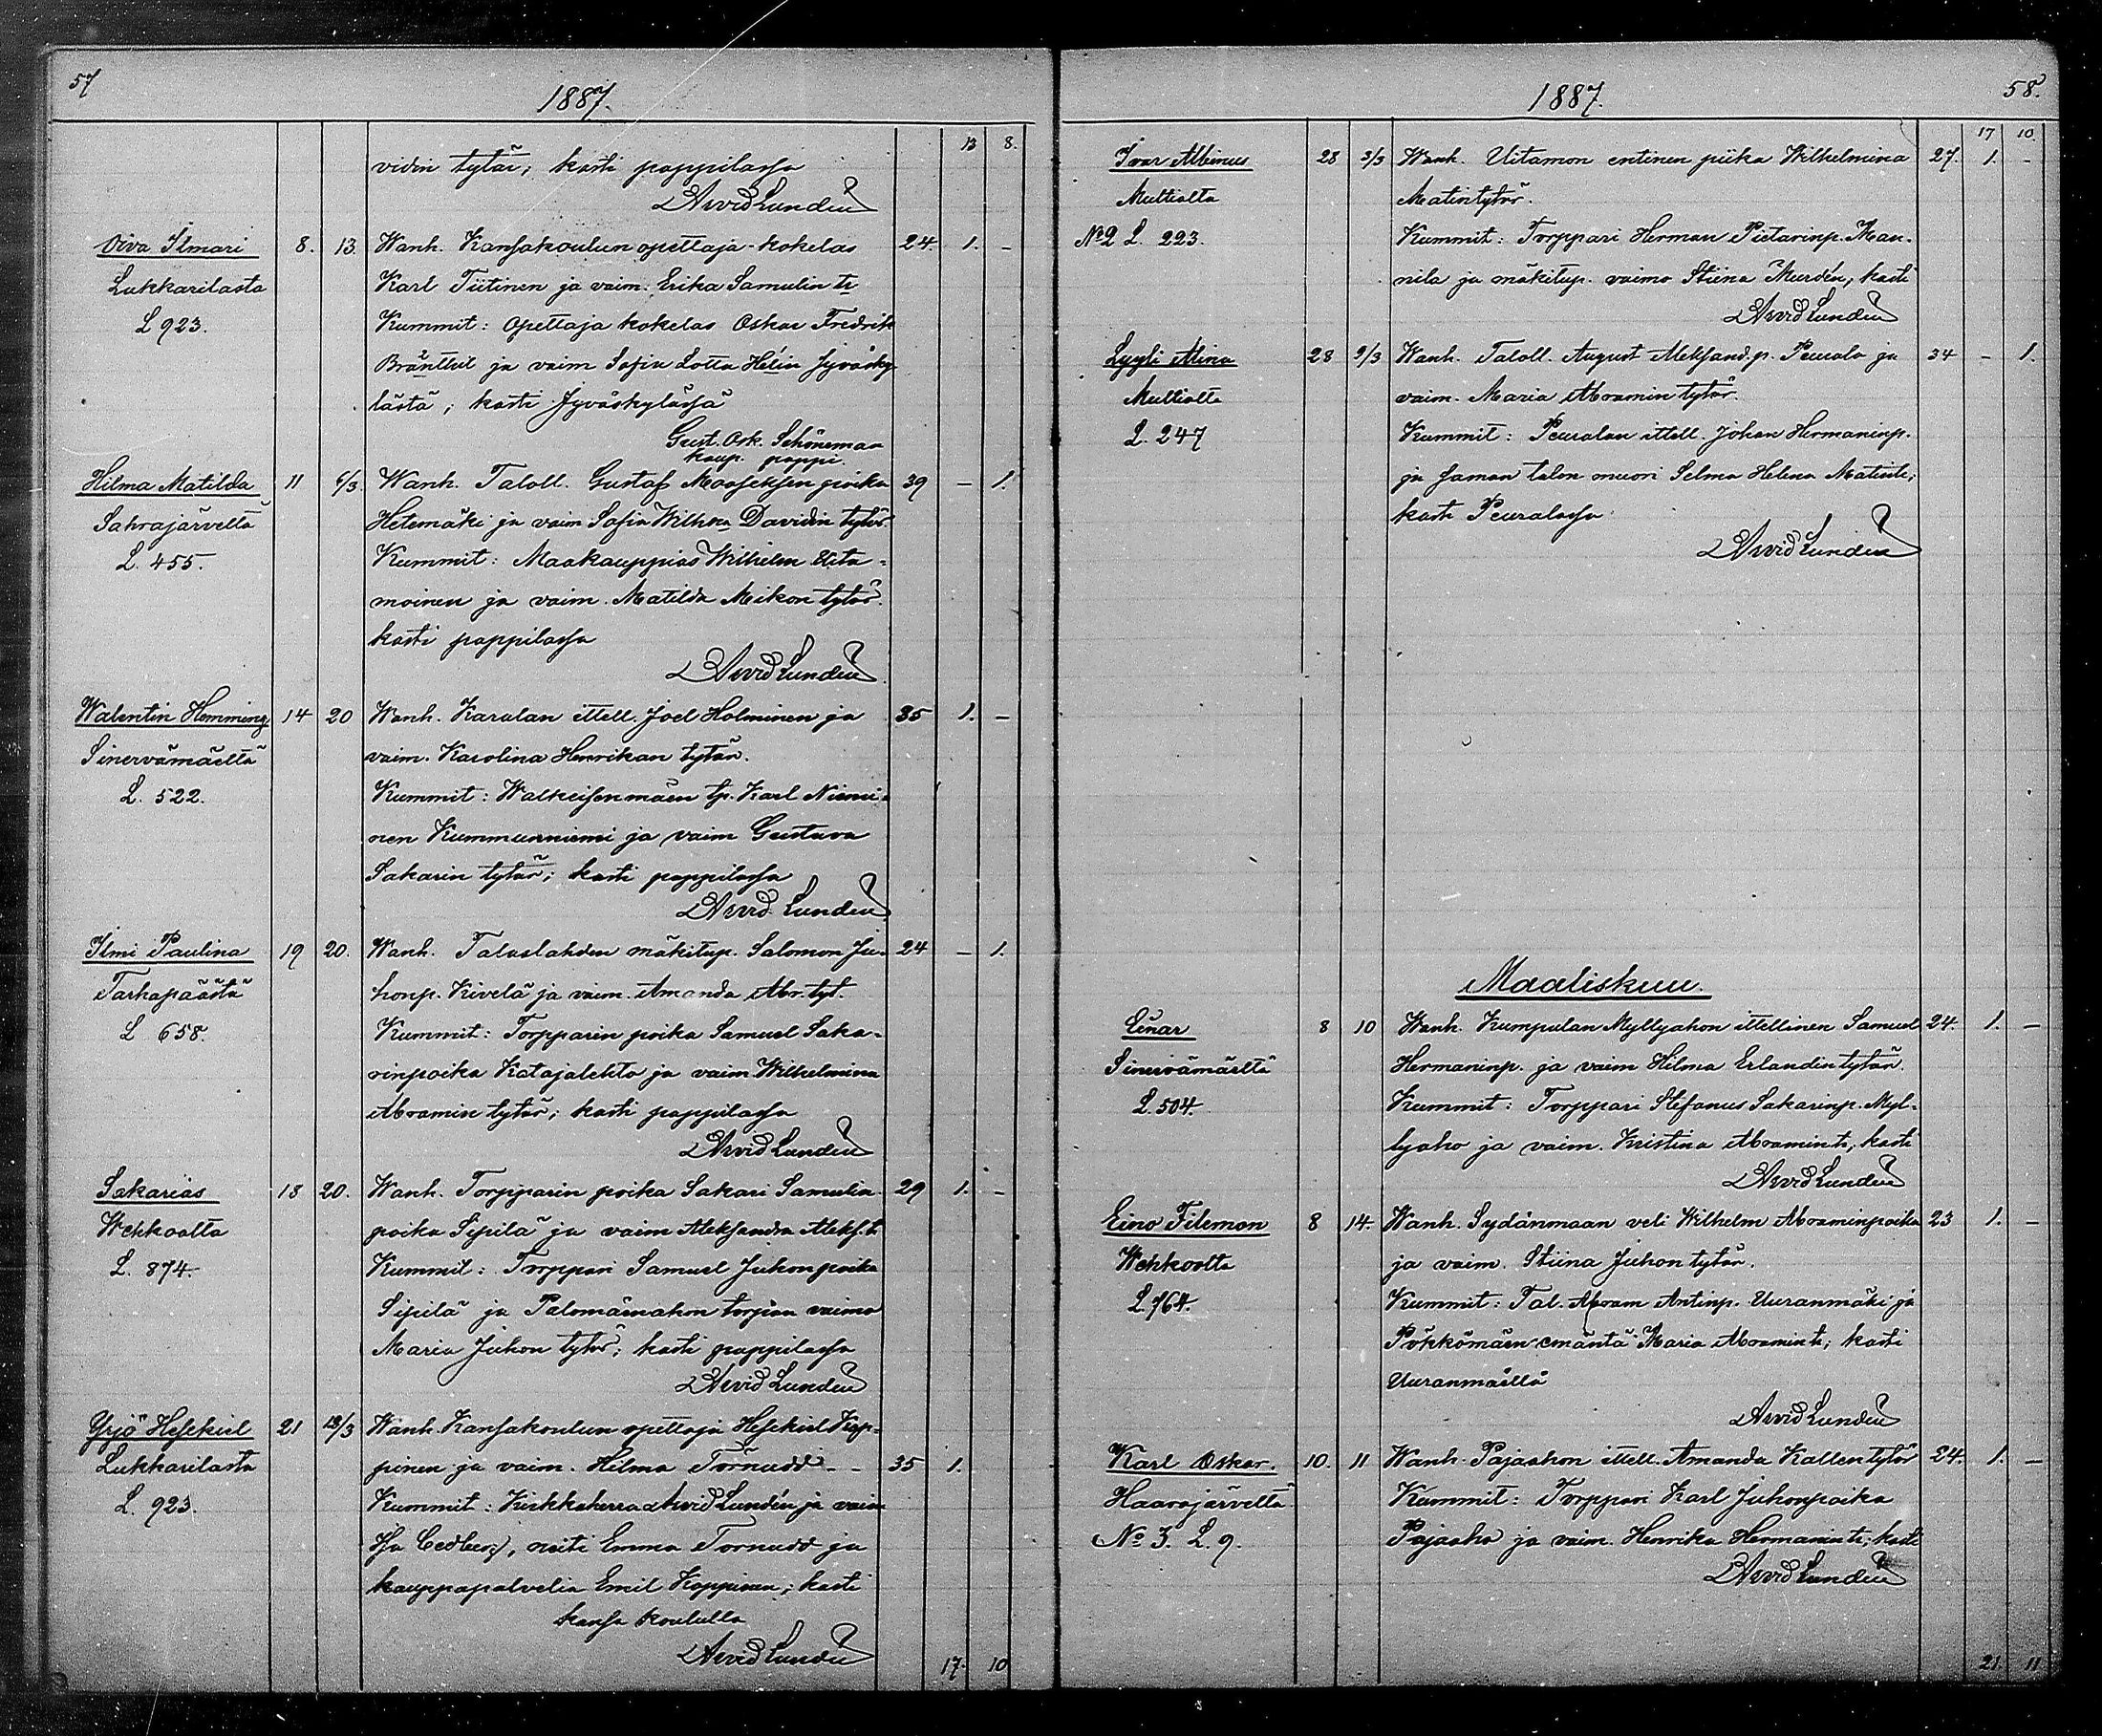 57
1887.
13 8.
vidin tytär; kasti pappilassa
Arvid Lundén
Oiva Ilmari 8. 13. Wanh. Kansakoulun opettaja-kokelas 24. 1. –
Lukkarilasta Karl Tiitinen ja vaim. Erika Samulin tr
L 923. Kummit: Opettaja kokelas Oskar Fredrik
ja vaim Sofia Lotta Helin Jyväsky
lästä; kasti Jyväskylässä
Gust. Osk. Schöneman
kaup. pappi.
Hilma Matilda 11 6/3. Wanh. Taloll. Gustaf Mooseksen poika 39 – 1.
Sahrajärveltä Hetemäki ja vaim Sofia Wilh:na Davidin tytär
L. 455. Kummit: Maakauppias Wilhelm Uita-
moinen ja vaim. Matilda Mikon tytär.
kasti pappilassa
Arvid Lundén
Walentin Hemming 14 20 Wanh. Karalan ittell. Joel Holminen ja 35 1. –
Sinervämäeltä vaim. Karolina Henrikan tytär.
L. 522. Kummit: Walkeisenmäen tp. Karl Niemi-
nen Kummunniemi ja vaim Gustava
Sakarin tytär; kasti pappilassa
Arvid Lundén
Ilmi Paulina 19 20. Wanh. Talaslahden mäkitup. Salomon Ju- 24 – 1.
Tarhapäästä honp. Kivelä ja vaim. Amanda Abr. tyt.
L 658. Kummit: Torpparin poika Samuel Saka-
rinpoika Katajalehto ja vaim Wilhelmina
Abramin tytär; kasti pappilassa
Arvid Lundén
Sakarias 18 20. Wanh. Torpparin poika Sakari Samulin 29 1. –
Wehkoolta poika Sipilä ja vaim Aleksandra Aleks. t.
L. 874. Kummit: Torppari Samuel Juhonpoika
Sipilä ja Palomäenahon torpan vaimo
Maria Juhon tytär; kasti pappilassa
Arvid Lundén
Yrjö Hesekiel 21 13/3 Wanh. Kansakoulun opettaja Hesekiel Kop-
Lukkarilasta pinen ja vaim. Hilma Törnudd – – 35 1.
L. 923. Kummit: Kirkkoherra Arvid Lundén ja vaim
Cedberg, neiti Emma Törnudd ja
kauppapalvelia Emil Koppinen; kasti
kansa koululla
Arvid Lundén
17. 10
1887.
58.
17 10.
Ivar Albinus 28 3/3 Wanh. Uitamon entinen piika Wilhelmina 27. 1. –
Multialta Matintytär.
No 2 L. 223. Kummit: Torppari Herman Pietarinp. Man-
nila ja mäkitup. vaimo Stiina Murdén, kasti
Arvid Lundén
Lyyli Mina 28 9/3 Wanh. Taloll. August Aleksand.p. Peurala ja 34 – 1.
Multialta vaim. Maria Abramin tytär.
L. 247 Kummit: Peuralan ittell. Johan Hermaninp.
ja saman talon muori Selma Helena Matint.;
kasti Peuralassa
Arvid Lundén
Maaliskuu.
Einar 8 10 Wanh. Kumpulan Myllyahon ittellinen Samuel 24. 1. –
Sinervämäeltä Hermaninp. ja vaim Hilma Erlandin tytär.
L. 504. Kummit: Torppari Stefanus Sakarinp. Myl-
lyaho ja vaim. Kristina Abramin t.; kasti
Arvid Lundén
Eino Filemon 8 14. Wanh. Sydänmaan veli Wilhelm Abraminpoika 23 1. –
Wehkoolta ja vaim. Stiina Juhon tytär.
L. 764. Kummit: Tal. Abram Antinp. Uuranmäki ja
Pökkömäen emäntä Maria Abramin t.; kasti
Uuranmäellä
Arvid Lundén
Karl Oskar. 10. 11 Wanh. Pajaahon ittell. Amanda Kallen tytär 24. 1. –
Haarajärveltä Kummit: Torppari Karl Juhonpoika
No 3. L. 9. Pajaaho ja vaim. Henrika Hermanin t.; kasti
Arvid Lundén
21. 11